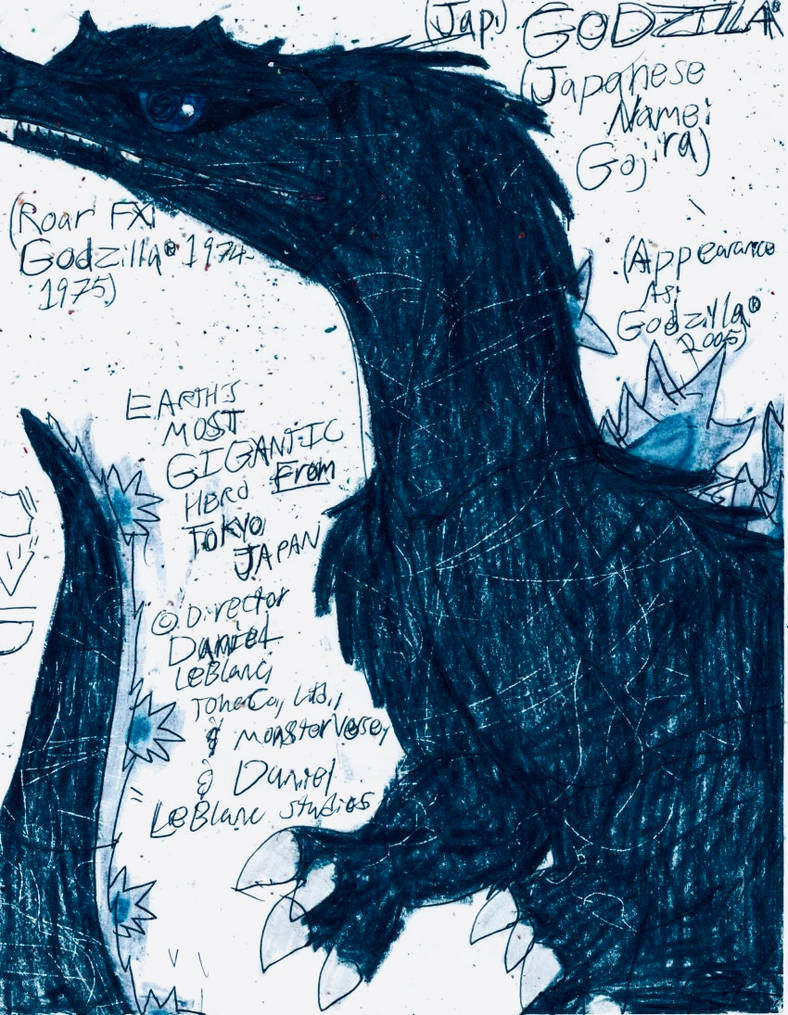 (Jap.) GODZILLA®
(Japanese
Name:
Gojira)
(Roar FX:
Godzilla® 1974-
1975)
(Appearance
As:
Godzilla®
2005)
EARTH'S
MOST
GIGANTIC
HERO From
TOKYO,
JAPAN
© Director
Daniel
LeBlanc,
Toho Co., Ltd.,
& MonsterVerse,
& Daniel
LeBlanc Studios